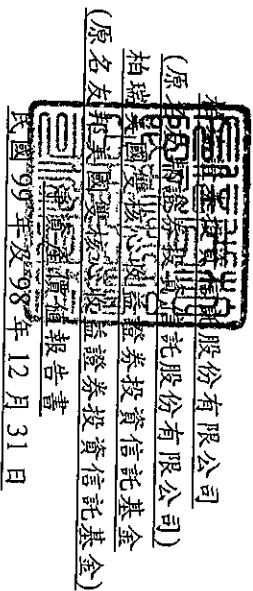 柏瑞證券投資信託股份有限公司
(原名友邦證券投資信託股份有限公司)
柏瑞美國雙核心收益證券投資信託基金
(原名友邦美國雙核心收益證券投資信託基金)
淨資產價值報告書
民國99年及98年12月31日